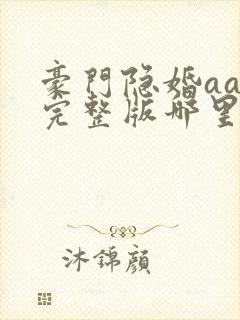 豪門隐婚aa
完整版哪里
沐錦顔